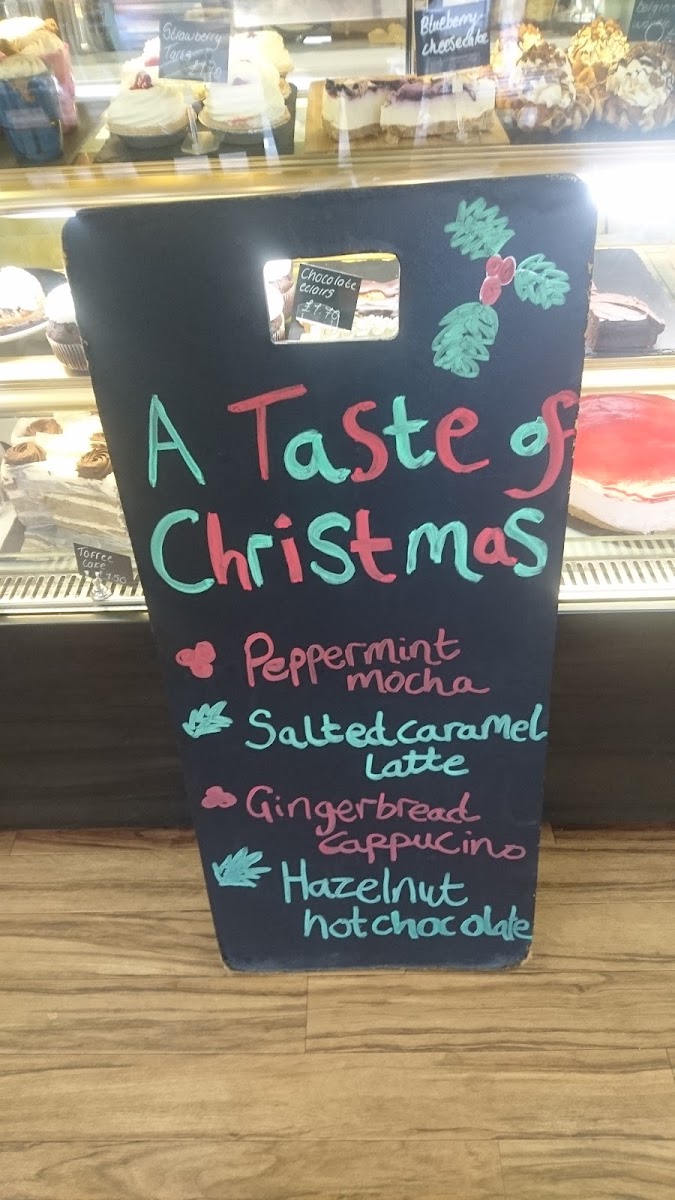 Strawberry
Tarts
Blueberry
cheesecake
Belgian
Chocolate
eclairs
£1.70
A Taste of
Christmas
Toffee
Cake
Peppermint
mocha
Salted caramel
latte
Gingerbread
cappucino
Hazelnut
hot chocolate